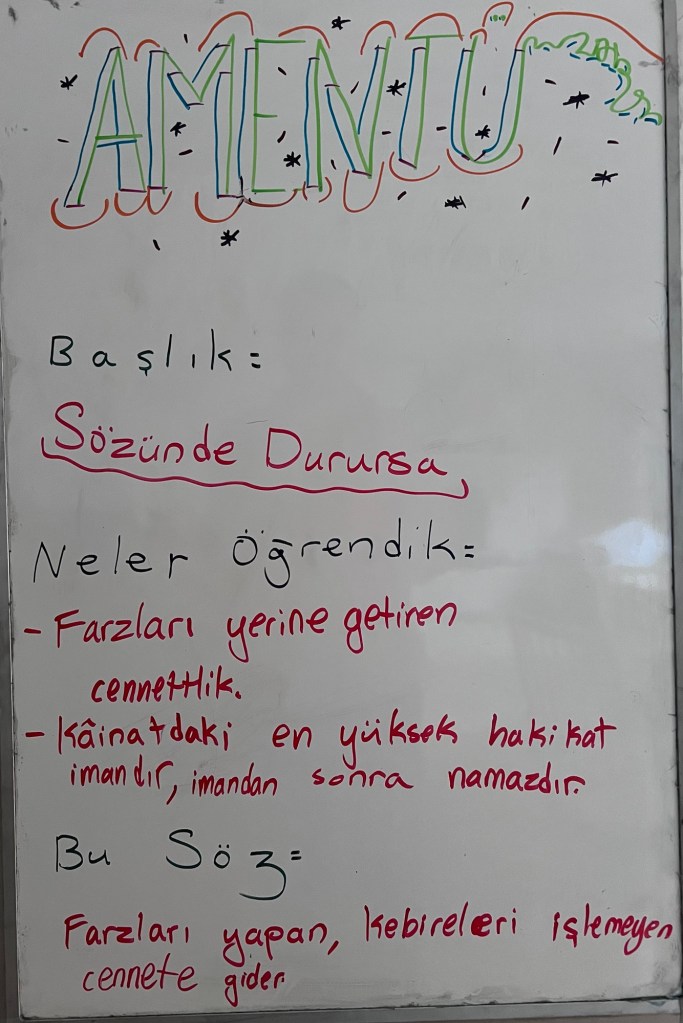 AMENTÜ
Başlık=
Sözünde Durursa
Neler Öğrendik=
- Farzları yerine getiren
cennettlik.
- Kâinatdaki en yüksek hakikat
imandır, imandan sonra namazdır.
Bu Söz=
Farzları yapan, kebireleri işlemeyen
cennete gider.